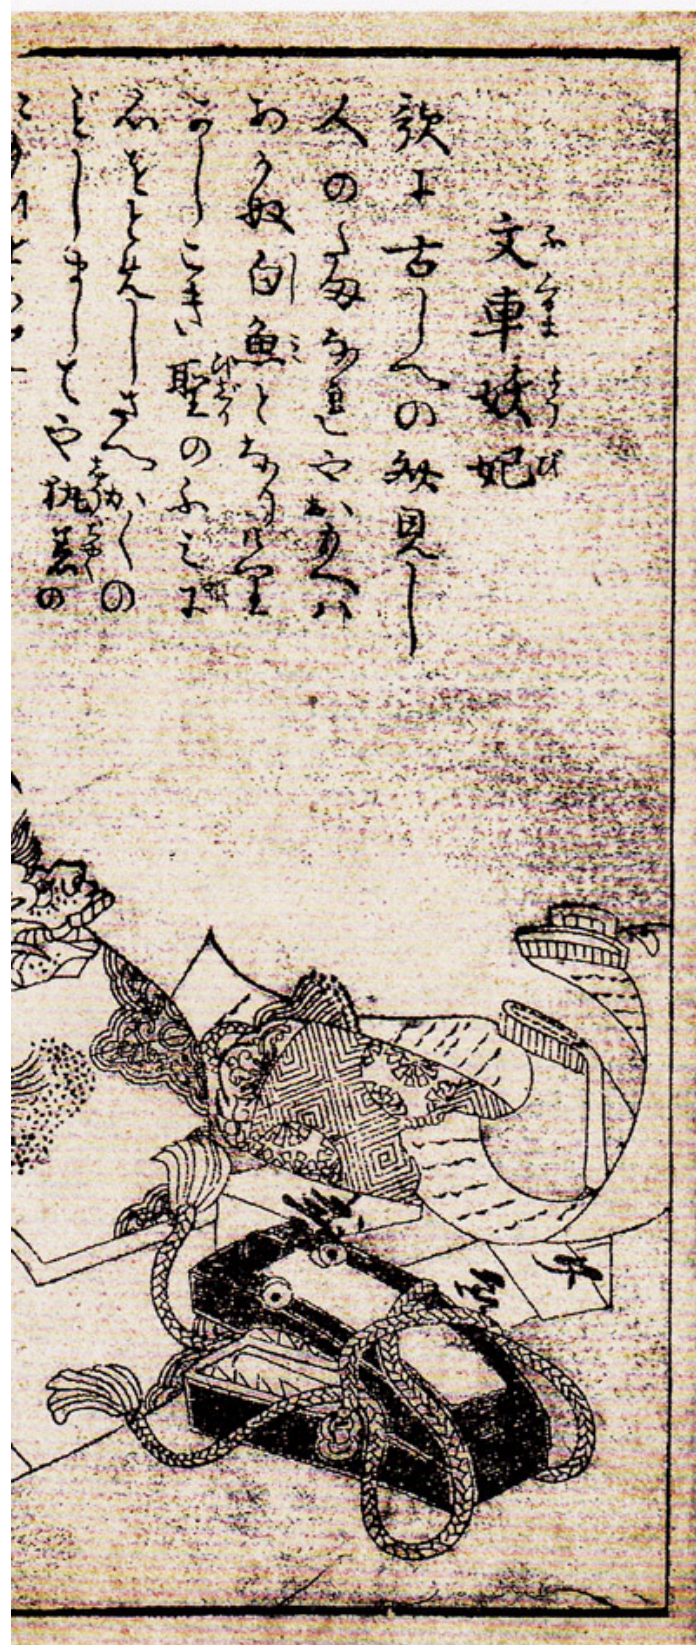 文車妖妃
ふぐるまようび
歌に古しへの文見し
人のたまなれやおもへは
あかぬ白魚となりけり
かしこき聖のふみに
心をとめしさへかくの
ごとしましてや執着の